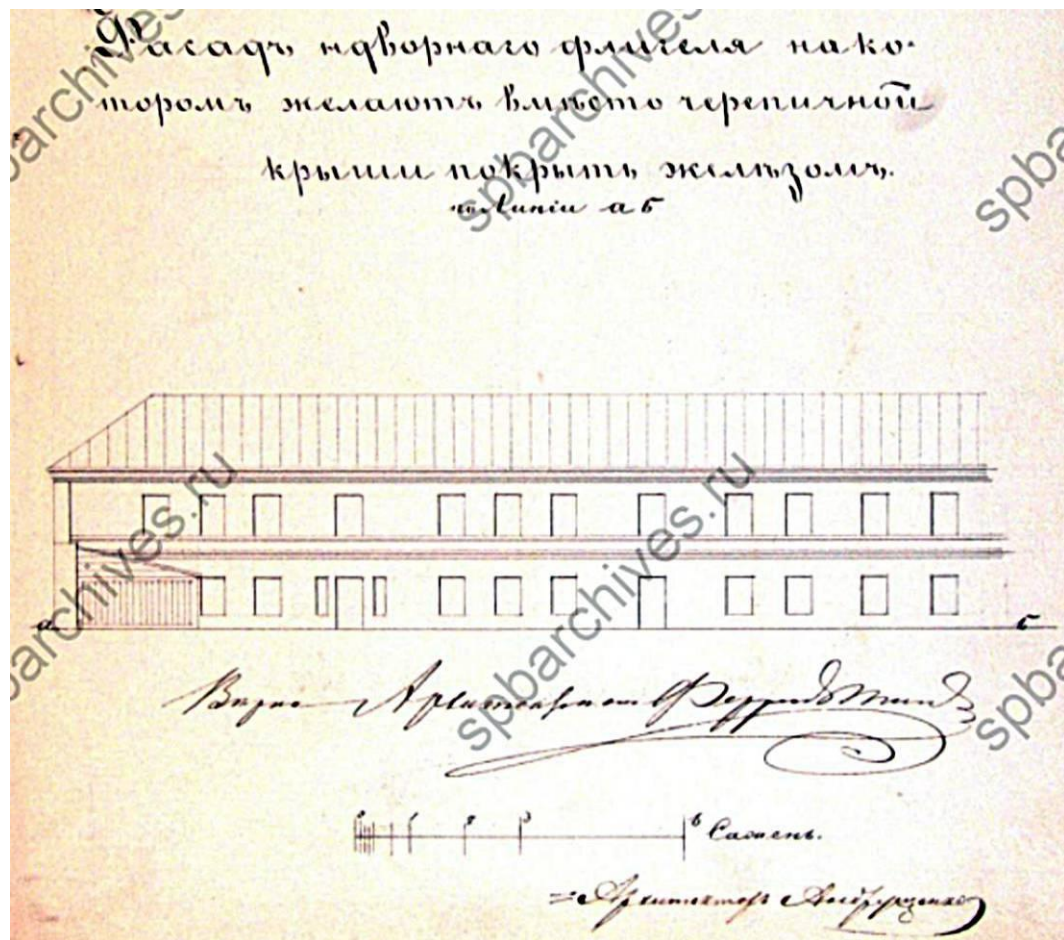 Фасадъ надворнаго флигеля на ко-
торомъ желаютъ вмѣсто черепичной
крыши покрыть желѣзомъ.
по Линіи а б
а
б
Вѣрно Архитекторъ
0 1 2 3 6 Сажень.
Архитекторъ
spbarchives.ru